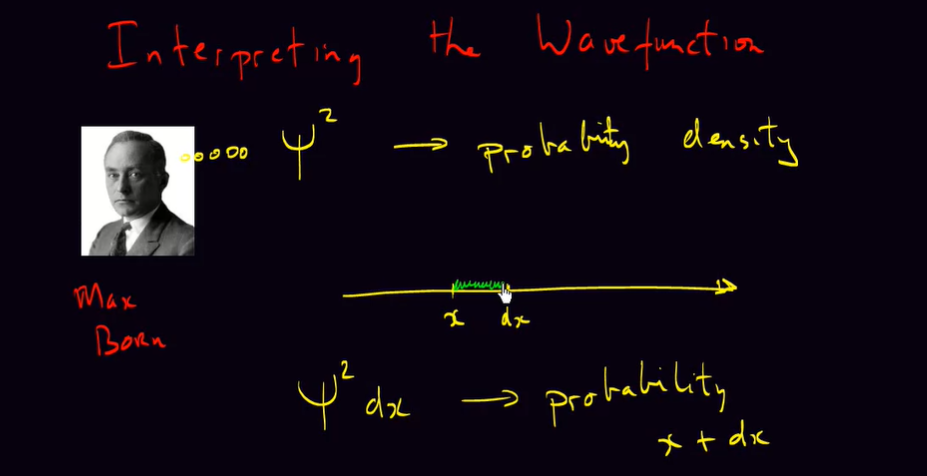 Interpreting the Wavefunction
Ψ² → probability density
Max
Born
x dx
Ψ² dx → probability
x + dx